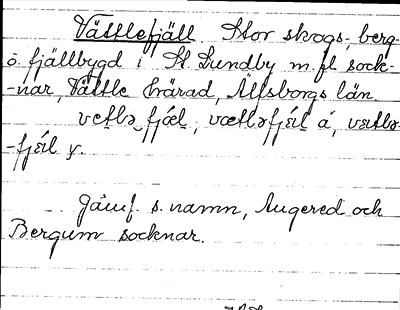 Vättlefjäll. Stor skogs, berg-
o. fjällbygd i St Lundby m. fl sock-
-nar, Vättle härad, Älfsborgs län.
vetlə fjæl, vætləfjäl á, vætlə-
-fjäl y.
Jämf. s. namn, Angered och
Bergum socknar.